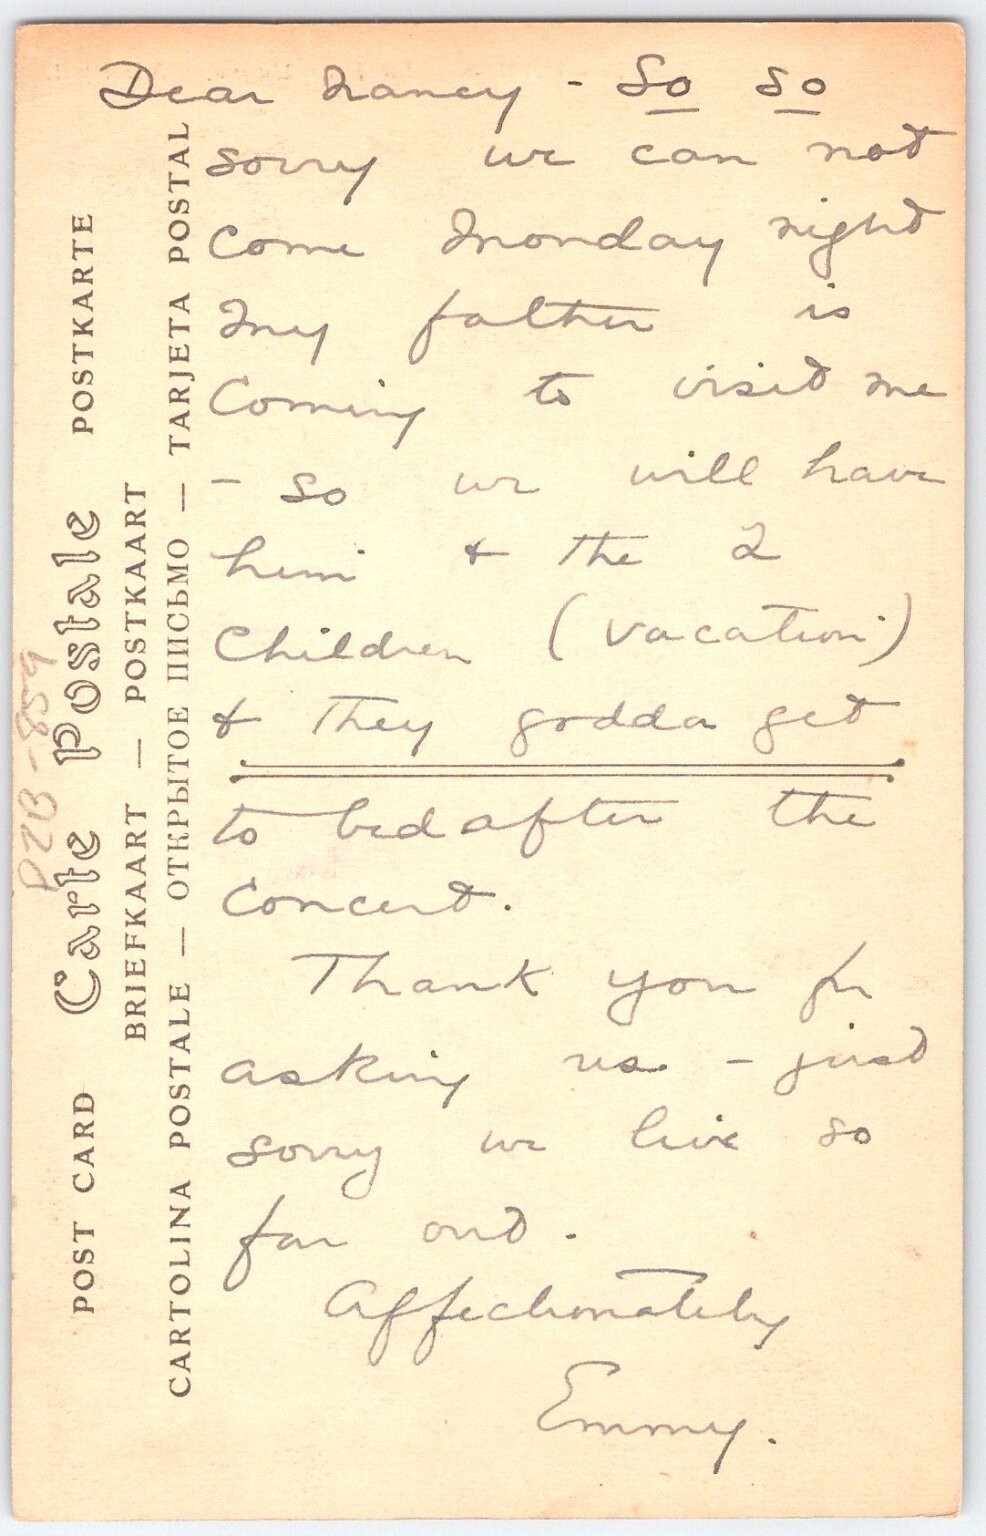 Dear Nancy - So so
sorry we can not
come Monday night
My father is
Coming to visit me
- So we will have
him & the 2
Children (vacation)
& They godda get
to bed after the
Concert.
Thank you for
asking us - just
sorry we live so
far out.
Affectionately
Emmy.
POST CARD Carte Postale POSTKARTE
BRIEFKAART — POSTKAART
CARTOLINA POSTALE — ОТКРЫТОЕ ПИСЬМО — TARJETA POSTAL
P2B-859